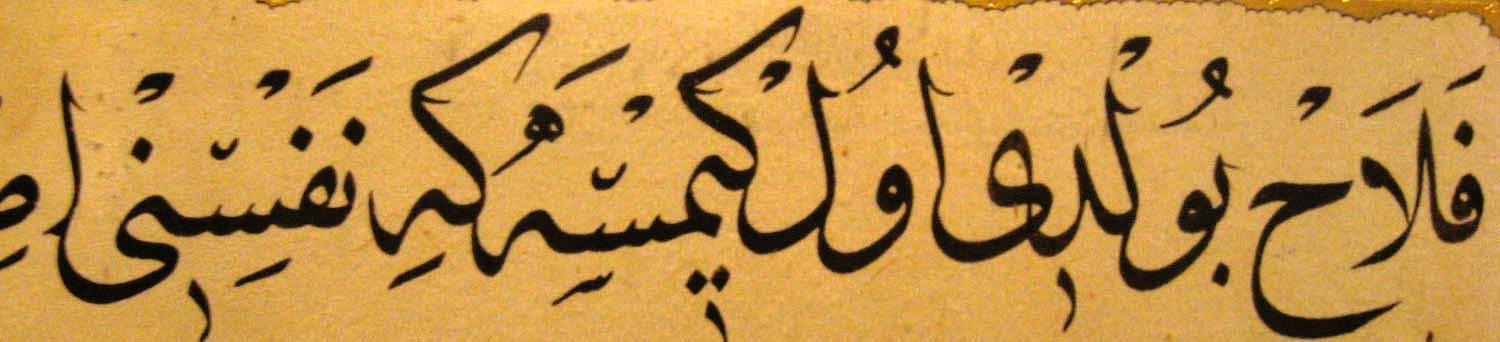 فَلَاحْ بُولْدِىْ اُولْ كِيمْسَه هُ كِه نَفْسِنِىْ